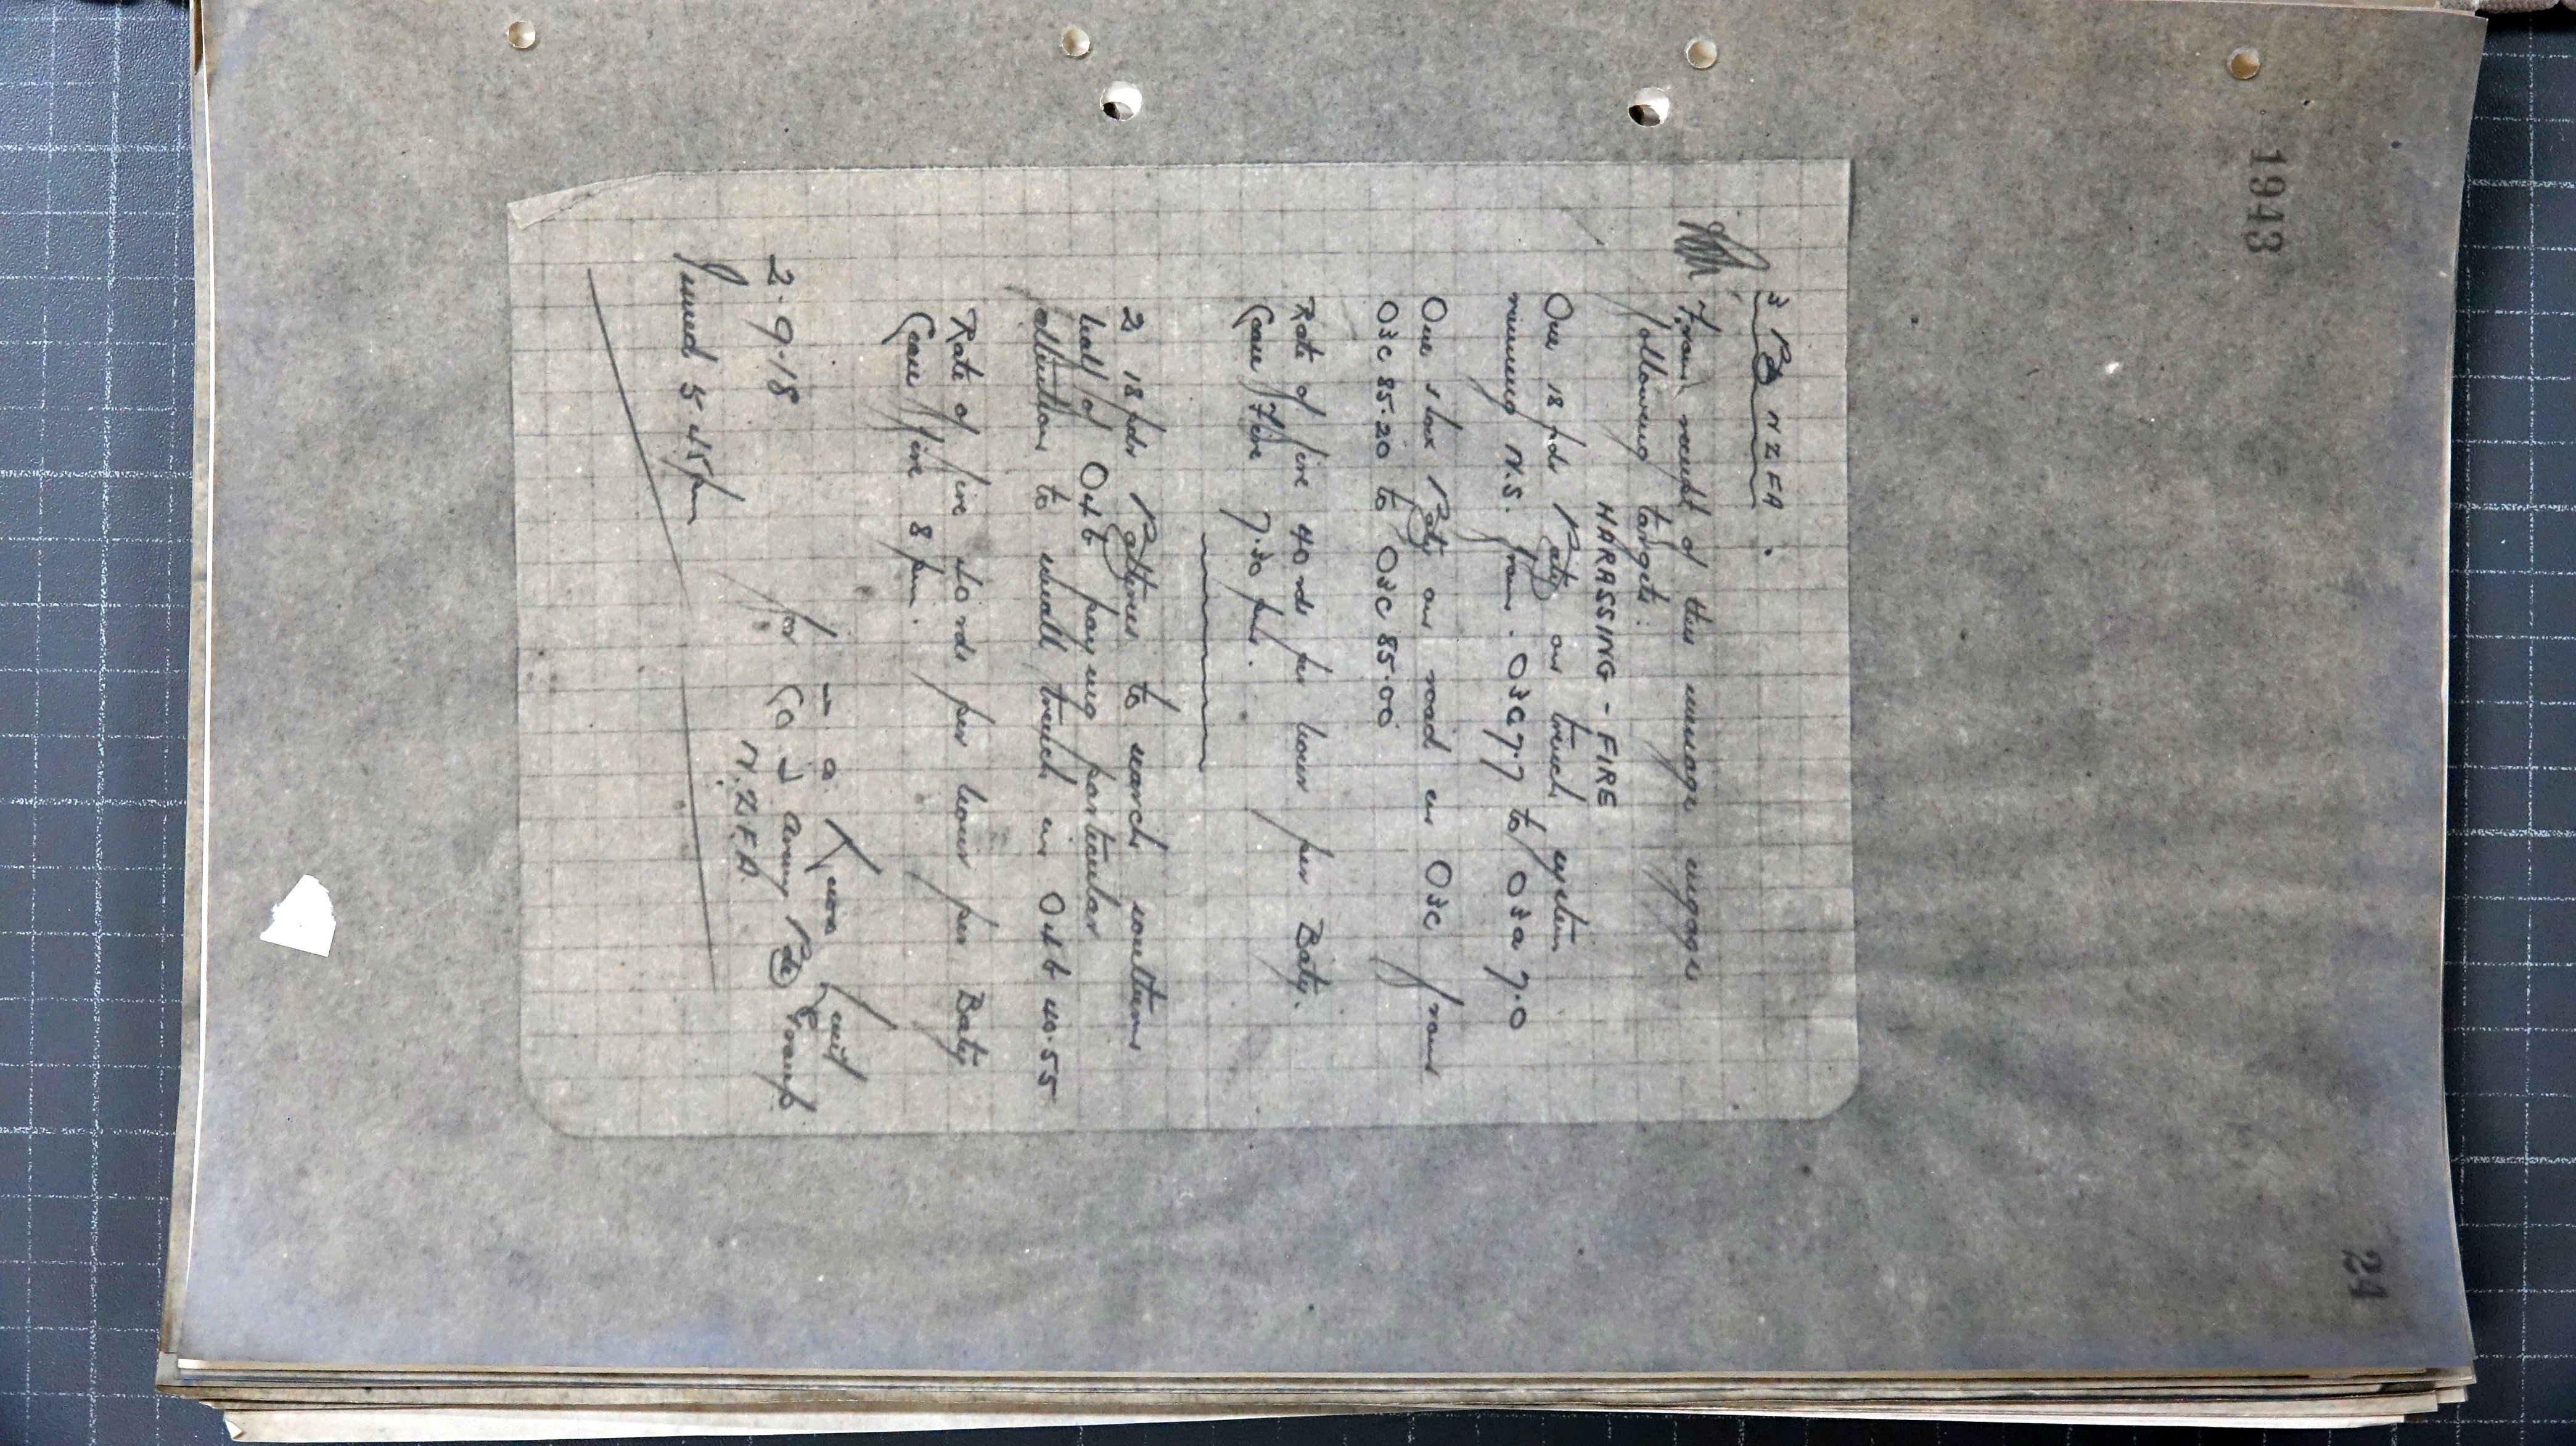 1943
24
3 Bde NZFA.
From receipt of this message engage
following targets:
HARASSING - FIRE
One 18 pdr Baty on trench system
running N.S. from. O3c 7.7 to O3a 7.0
One 4.5 How Baty on road in O3c from
O3c 85.20 to O3c 85.00
Rate of fire 40 rds per hour per Baty.
Cease Fire 7.30 pm.
2 18 pdr Batteries to search southern
half of O4b paying particular
attention to small trench in O4b 40.55
Rate of fire 40 rds per hour per Baty
Cease fire 8 pm.
Lieut
2.9.18 for Cod Army Bde Group
N.Z.F.A.
Issued 5.45 pm